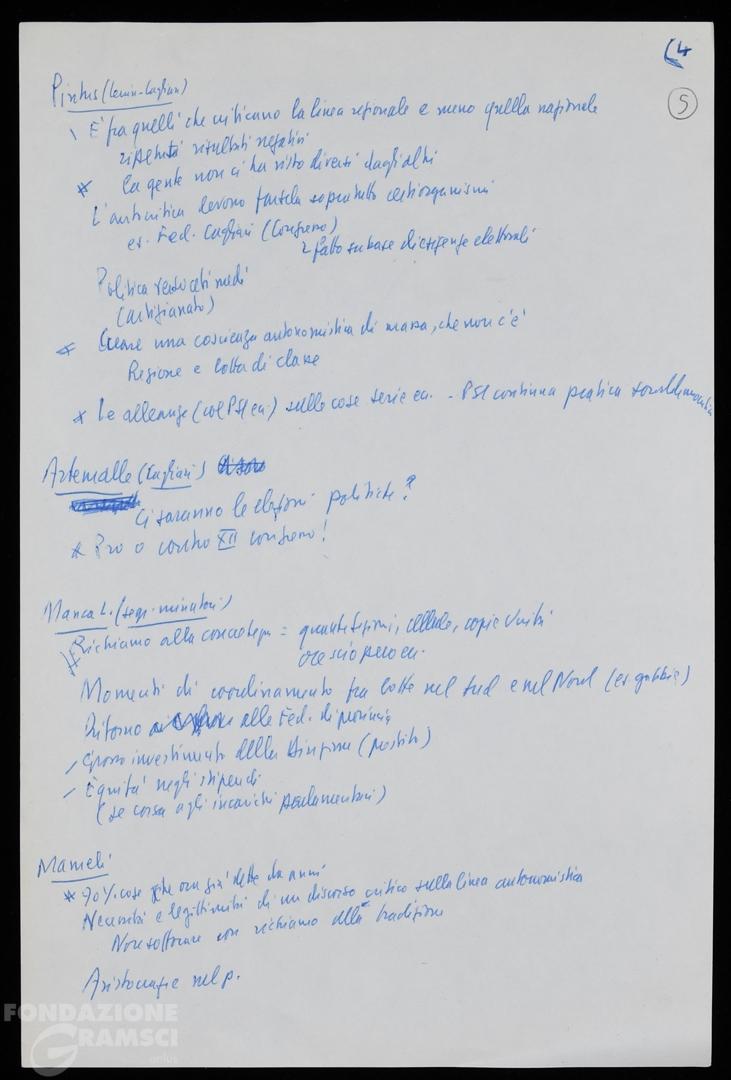 (4
5
Pintus (Lenin-Cagliari)
\ E' fra quelli che criticano la linea regionale e meno quella nazionale
ripetuti risultati negativi
* La gente non ci ha visto diversi dagli altri
L'autocritica devono farsela soprattutto certi organismi
es. Fed. Cagliari (Congresso)
fatto su base di esigenze elettorali
Politica verso ceti medi
(artigianato)
* Creare una coscienza autonomistica di massa, che non c'è
Regione e lotta di classe
* Le alleanze (col PSI ecc.) sulle cose serie ecc. - PSI continua pratica
Artemalle (Cagliari)
Ci saranno le elezioni politiche?
* Pro o contro XII congresso!
Manca L. (segr. minatori)
* Richiamo alla concretezza = quante sezioni, cellule, copie Unità
ore sciopero ecc.
Momenti di coordinamento fra lotte nel Sud e nel Nord (es gabbie)
Ritorno alle Fed. di provincia
/ Grosso investimento della Direzione (partito)
/ Equità negli stipendi
(se corsa agli incarichi parlamentari)
Mameli
* 90% cose che già dette da anni
Necessità e legittimità di un discorso critico sulla linea autonomistica
Non soffocare con richiamo alla tradizione
Aristocrazie nel p.
FONDAZIONE
GRAMSCI
onlus